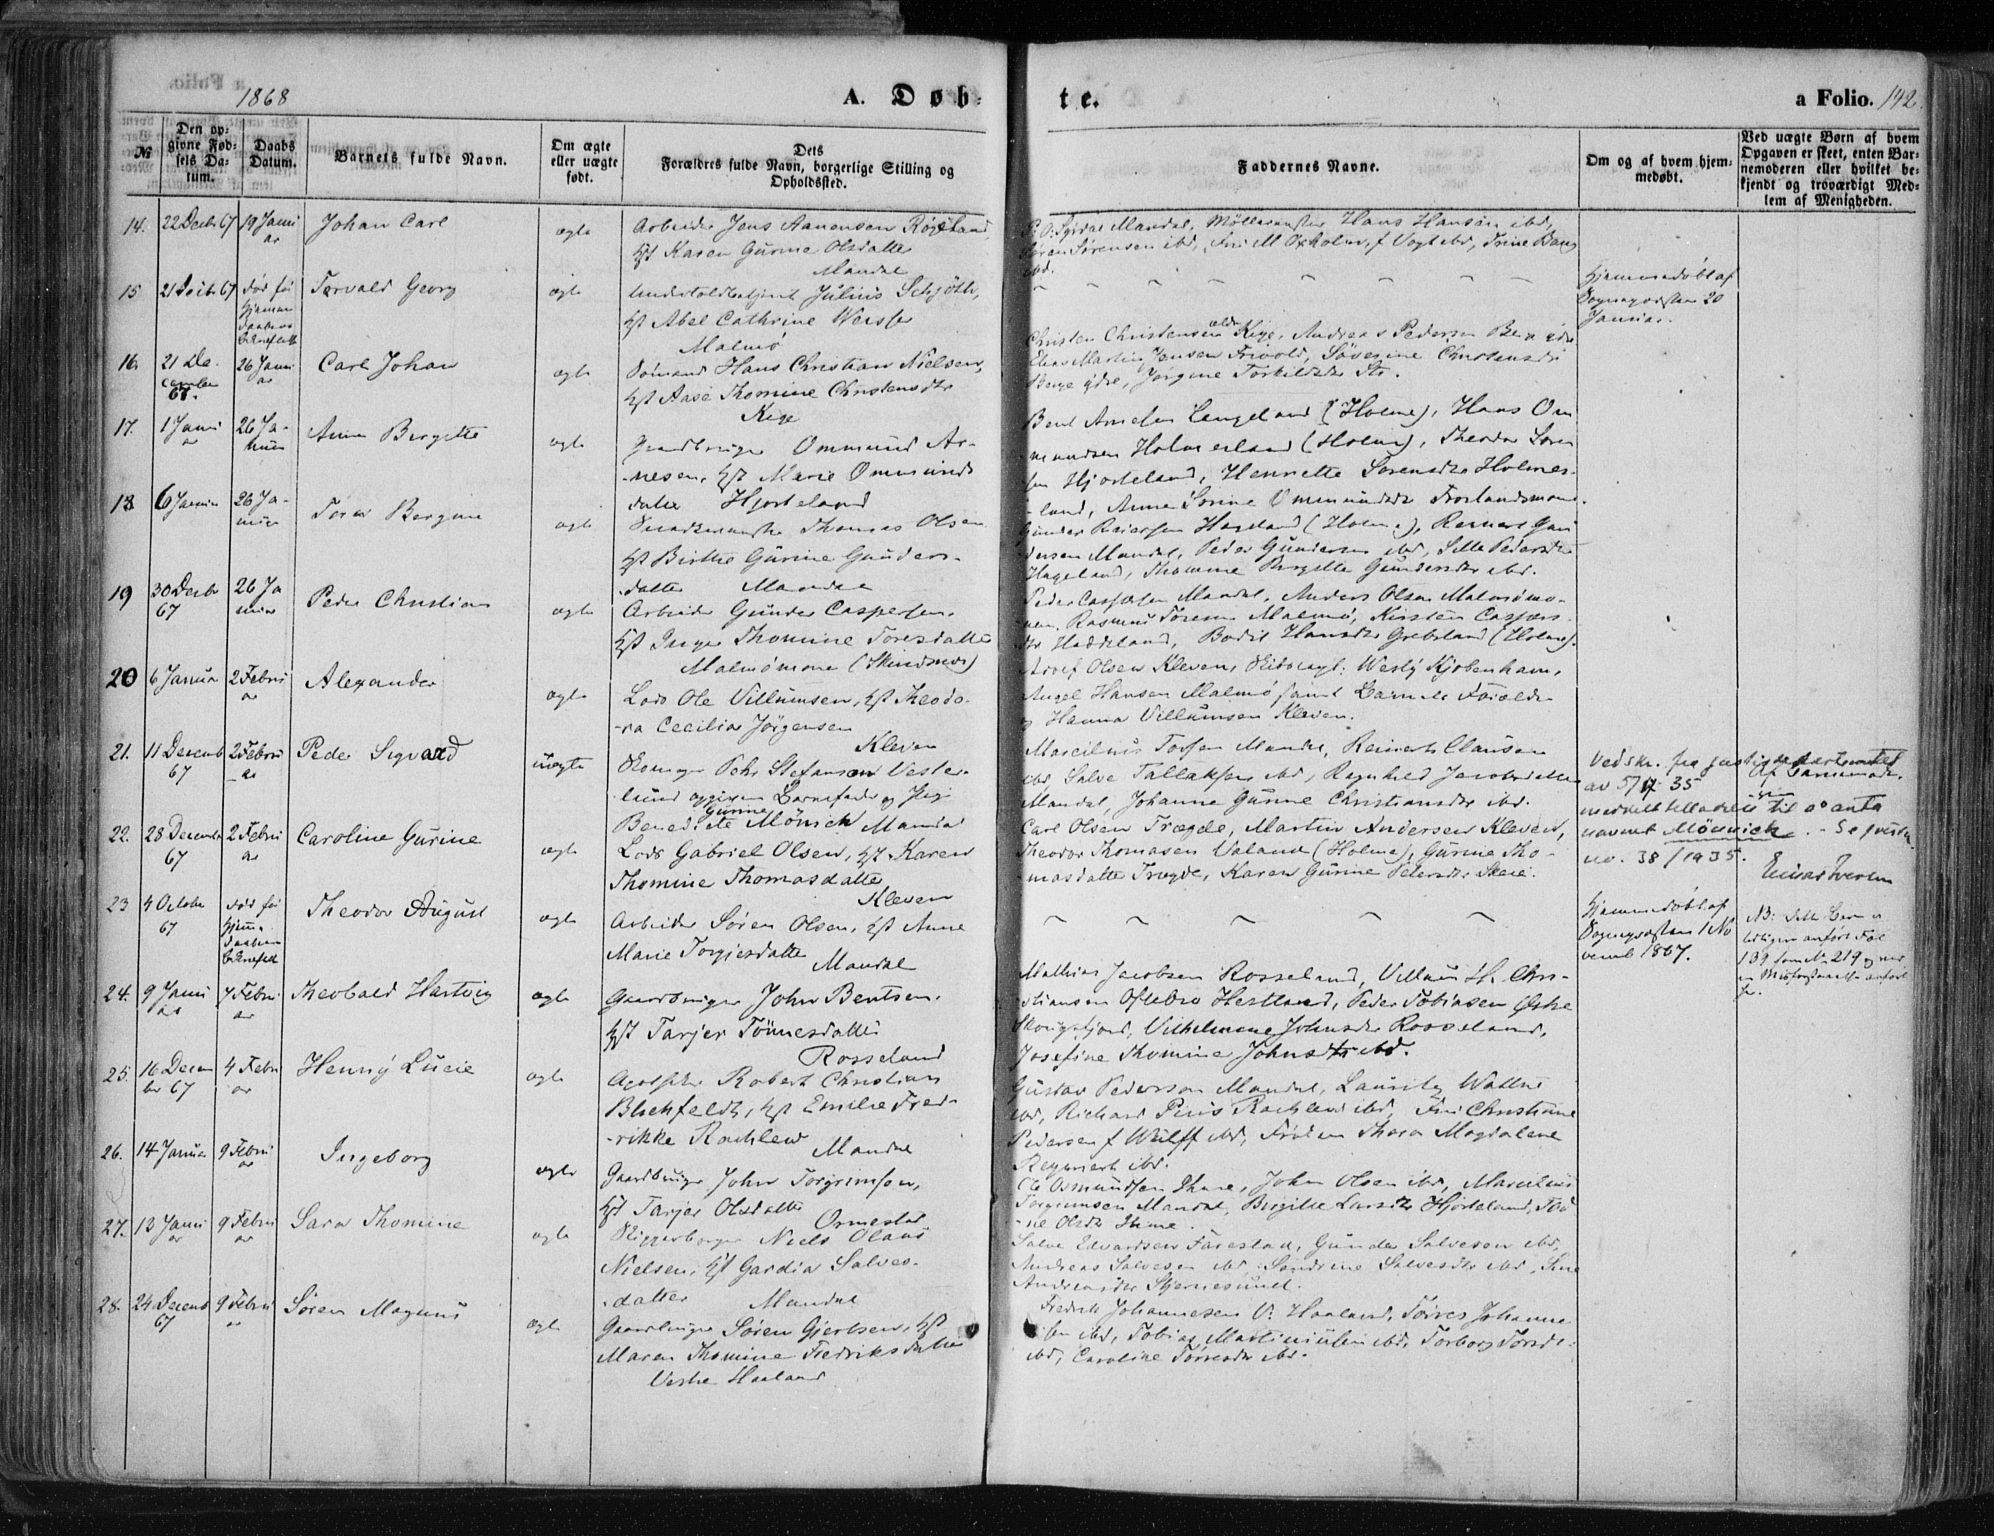 1868
A. Døb-
te.
a Folio. 142.
№
Den op-
givne Fød-
sels Da-
tum.
Daabs
Datum.
Barnets fulde Navn.
Om ægte
eller uægte
født.
Dets
Forældres fulde Navn, borgerlige Stilling og
Opholdssted.
Faddernes Navne.
Om og af hvem hjem-
medøbt.
Ved uægte Børn af hvem
Opgaven er skeet, enten Bar-
nemoderen eller hvilket be-
kjendt og troværdigt Med-
lem af Menigheden.
14. 22 Decbr 67 19 Janu
ar
Johan Carl
ægte
Arbeider Jens Aanensen Røiseland
Hst Karen Gurine Olsdatter
Mandal
Mandal, Hans Hansen ibd,
Sørensen ibd, f. Vogt ibd, Trine Bang
ibd.
15 21 Decbr 67 død før
Hjemme
daabens
Bekræftelse
Torvald Georg
ægte
Undertoldbetjent Julius Schjøth,
Hst Abel Cathrine Weisser
Malmø
Hjemmedøbt af
Sognepresten 20
Januar.
16. 21 De-
cember
67.
26 Janu
ar
Carl Johan
ægte
Sømand Hans Christian Nielsen,
Hst Aase Thomine Christensdtr
Kige
Christen Christensen Kige, Andreas Pedersen
Elias Martin Jensen Frivold, Søverine Christensdtr
ydre, Jørgine Torkildsdtr
17. 1 Janu
ar
26 Ja-
nuar
Anna Birgitte
ægte
Gaardbruger Ommund Ar-
nesen, Hst Marie Ommunds
datter Hjorteland
Bent Arnesen Lengeland (Holme), Hans Om
mundsen Holmesland (Holme), Theodor Søren
sen Hjorteland, Henriette Sørensdtr Holmes-
land, Anne Serine Ommundsdtr
18 6 Januar 26 Ja-
nuar
Tora Bergine
ægte
Thomas Olsen
Hst Birthe Gurine Gunders-
datter Mandal
Gunder Reiersen Hageland (Holme), Reinert Gun
dersen Mandal, Peder Gundersen ibd, Pedersdtr
Hageland, Thomine Birgitte Gundersdtr ibd.
19 30 Decbr
67
26 Ja
nuar
Peder Christian
ægte
Arbeider Gunder Caspersen,
Hst Inger Thomine Toresdatter
Malmømone (Skindsnes)
Peder Caspersen Mandal, Anders Olsen Malmømo-
nen, Rasmus Toresen Malmø, Kirsten Caspers-
dtr Haddeland, Bodil Hansdtr Grebsland (Holme).
20 6 Januar 2 Febru
ar
Alexander
ægte
Lods Ole Villumsen, Hst Theodo-
ra Cecilia Jørgensen
Kleven
Olsen Kleven, Westly Kjøbenhavn,
Hansen Malmø samt Barnets Forældre
og Hanna Villumsen Kleven.
21. 11 Decemb
67
2 Febru
ar
Peder Sigvard
uægte
Skomager Pehr Stefanson Vester-
lund opgiven Barnefader og Pige
Benedicte Gurine Mönich Mandal
Marcilius Mandal, Reinert Clausen
ibd, Salve Tallaksen ibd, Reinhild Jacobsdatter
Mandal, Johanne Gurine Christiansdtr ibd.
Ved skr. fra justisdepartementet
av 5/4 35
meddelt tilladelse til å anta
navnet Mönnich. - Se
no. 38/1935.
Af Barnemode-
ren
22. 28 December
67
2 Febru
ar
Caroline Gurine
ægte
Lods Gabriel Olsen, Hst Karen
Thomine Thomasdatter
Kleven
Carl Olsen Trægde, Martin Andersen Kleven,
Theodor Thomasen Valand (Holme), Gurine Tho-
masdatter Trægde, Karen Gurine Petersdtr
23 4 Octobr
67
død før
Hjemme
daabens
Bekræftelse
Theodor August
ægte
Arbeider Søren Olsen, Hst Anne
Marie Torgjersdatter
Mandal
Hjemmedøbt af
Sognepresten 1 No
vemb 1867.
NB: dette Barn er
tidligere anført Fol
139 som No 219 og
Misforstaaelse anført
her.
24. 9 Janu
ar
7 Febru
ar
Theobald Hartvig
ægte
Gaardbruger John Bentsen,
Hst Tarjer Tönnesdatter
Rosseland
Mathias Jacobsen Rosseland, Villum H. Chri-
stiansen Oftebro Hestland, Peder Tobiasen Østre
Skougsfjord, Vilhelmine Johnsdtr Rosseland,
Josefine Thomine Johnsdtr ibd.
25. 16 Decem
ber 67
4 Febru
ar
Henny Lucie
ægte
Apotheker Robert Christian
Blichfeldt, Hst Emilie Fred-
rikke Rachlew
Mandal
Gustav Pedersen Mandal, Lauritz
ibd, Richard Rachlew ibd, Christiane
Pedersen f Wulff ibd, Frøken Thora Magdalene
ibd.
26. 14 Januar 9 Febru
ar
Ingeborg
ægte
Gaardbruger John Torgrimsen,
Hst Tarjer Olsdatter
Ormestad
Ole Osmundsen Ihme, John Olsen ibd, Marcelius
Torgrimsen Mandal, Birgitte Larsdtr Hjorteland,
Olsdtr Ihme.
27. 13 Janu
ar
9 Febru
ar
Sara Thomine
ægte
Skipperborger Niels Olaus
Nielsen, Hst Gardia Salves-
datter Mandal
Salve Edvardsen Farestad, Gunder Salvesen ibd,
Andreas Salvesen ibd, Sandrine Salvesdtr ibd,
Andreasdtr Skjernesund.
28. 24 Decemb
67
9 Febru
ar
Søren Magnus
ægte
Gaardbruger Søren Gjertsen, Hst
Maren Thomine Fredriksdatter
Vestre Haaland
Fredrik Johannesen V. Haaland, Tørres Johanne
sen ibd, Tobias ibd, Torborg
ibd, Caroline Tørresdtr ibd.